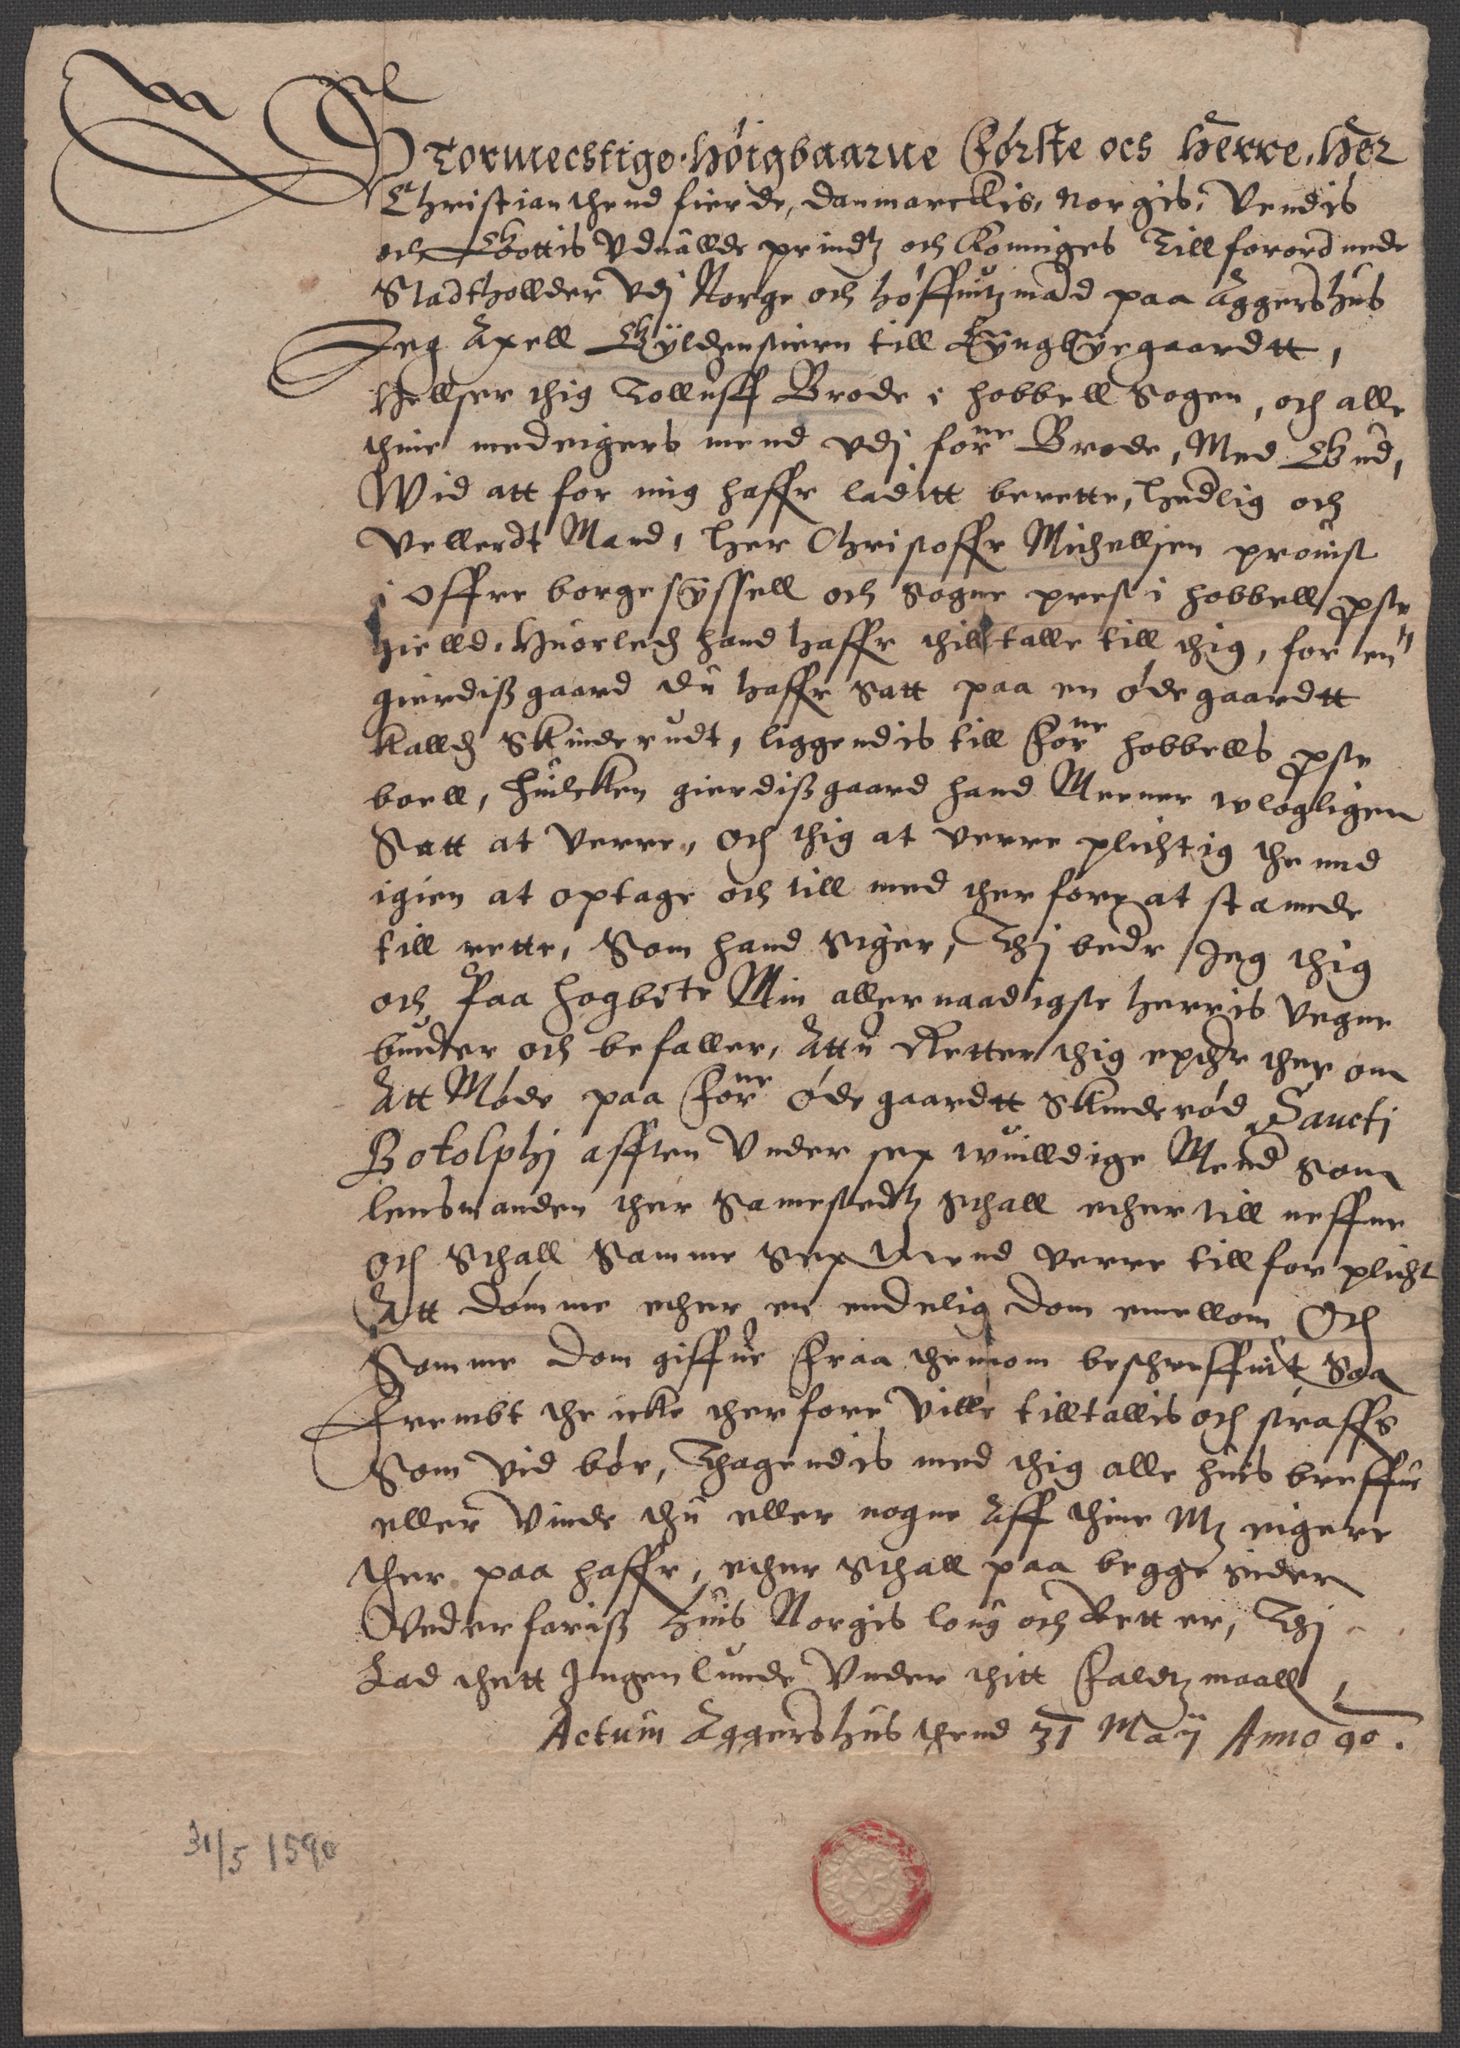 Stormechtige, höigbaarne Förste ocs Herre, Her
Christian thend fierde, Danmarckis, Norgis, Vendis
och Gottis Vduållde prindtz och Konninges Till forordnede
Stadthollder vdj Norge och höffuitzmand paa Aggershus
Jeg Axell Gÿldenstiern till Lÿngbÿegaardtt,
Hellser thig Tolluff Brode i Hobbell Sogen, och alle
thine medeigers mend vdj forne Brode, Med Gud,
Wid att for mig haffr ladett berette, hedlig och
Vellerdt Mand, her Christoffr Michellsen prouist
i Offre borgesÿssell och Sogne prest i hobbell pste
gielld, huorledh hand haffr thilltalle till thig, for en
gierdißgaard du haffr Satt paa en ödegaardtt
kalledh Skinderudt, liggendis till forne hobbells pste
boell, huilcken gierdißgaard hand Meener wlogligen
Satt at verre, Och thig at verre plichtig thennd
igien at optage och till med ther fore at stannde
till rette, Som hand Siger, Thj beder Jeg thig
och paa högbte Min allernaadigste herris Vegne
biuder och befaller, Attu Retter thig epther ther om
Att Möde paa forne Ödegaardtt Skinderöd Sancti
Botolphj afften Vnder sex wuilldige Mend Som
lensmanden ther Samestedtz Schall ether till neffne
Och Schall Samme Sex Mend verre till forplicht
Att dömme ether en endelig dom emellom Och
Somme dom giffue fraa thennom beschreffuit Saa
Frembt the icke therfore Ville tilltallis och straffs
Som vid bör, Thagendis med thig alle huis breffue
eller Vinde thu eller nogne Aff thine Mz eigere
ther paa haffr, ether Schall paa begge Sider
Vederfariß huis Norgis loug och Rett er, Thj
Lad thett Ingenlunde Vnder thitt Faldtzmaall,
Actum Aggershus thend 31 Maÿ Anno 90.
31/5 1590